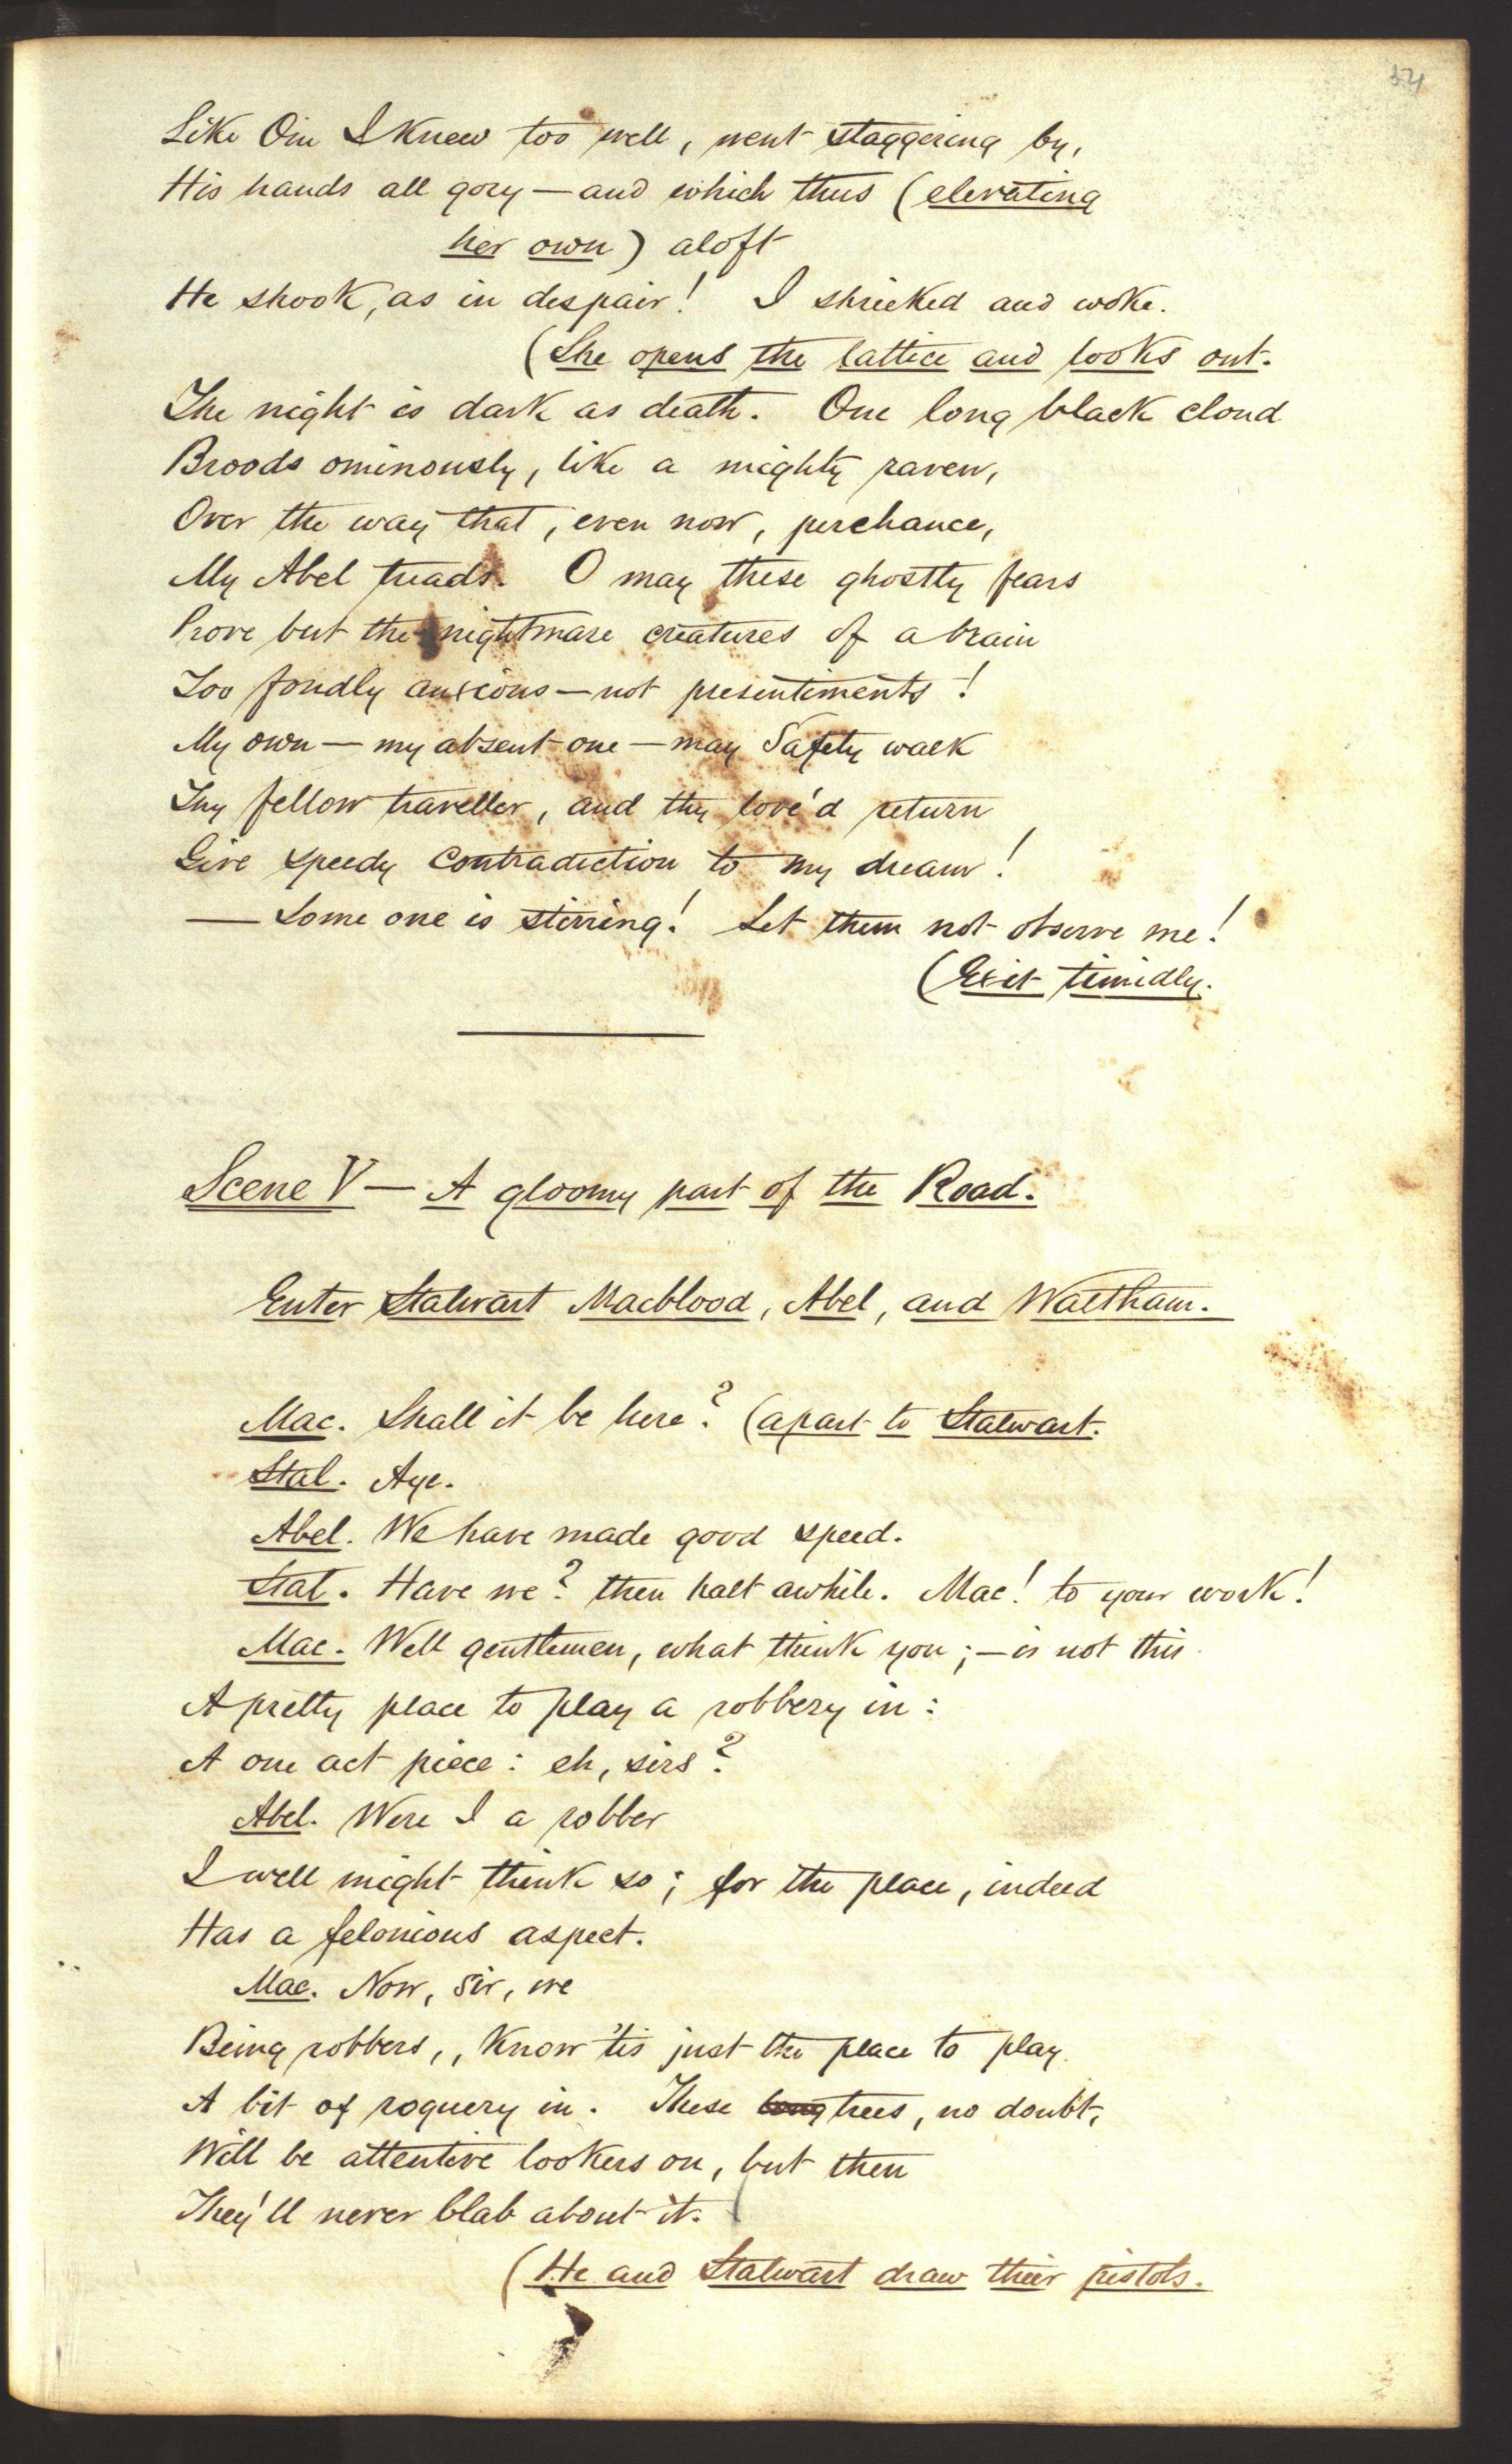 54
Like One I knew too well, went staggering by,
His hands all gory — and which thus (elevating
her own) aloft
He shook, as in despair! I shrieked and woke.
(She opens the lattice and looks out.
The night is dark as death. One long black cloud
Broods ominously, like a mighty raven,
Over the way that, even now, perchance,
My Abel treads. O may these ghostly fears
Prove but the nightmare creatures of a brain
Too fondly anxious — not presentiments!
My own — my absent one — may Safety walk
Thy fellow traveller, and thy love'd return
Give speedy contradiction to my dream!
— Some one is stirring! Let them not observe me!
(Exit timidly.
Scene V — A gloomy part of the Road.
Enter Stalwart Macblood, Abel, and Waltham.
Mac. Shall it be here? (apart to Stalwart.
Stal. Aye.
Abel. We have made good speed.
Stal. Have we? then halt awhile. Mac! to your work!
Mac. Well gentlemen, what think you; — is not this
A pretty place to play a robbery in:
A one act piece: eh, sirs?
Abel. Were I a robber
I well might think so; for the place, indeed
Has a felonious aspect.
Mac. Now, sir, we
Being robbers,, know 'tis just the place to play
A bit of roguery in. These long trees, no doubt,
Will be attentive lookers on, but then
They'll never blab about it.
(He and Stalwart draw their pistols.